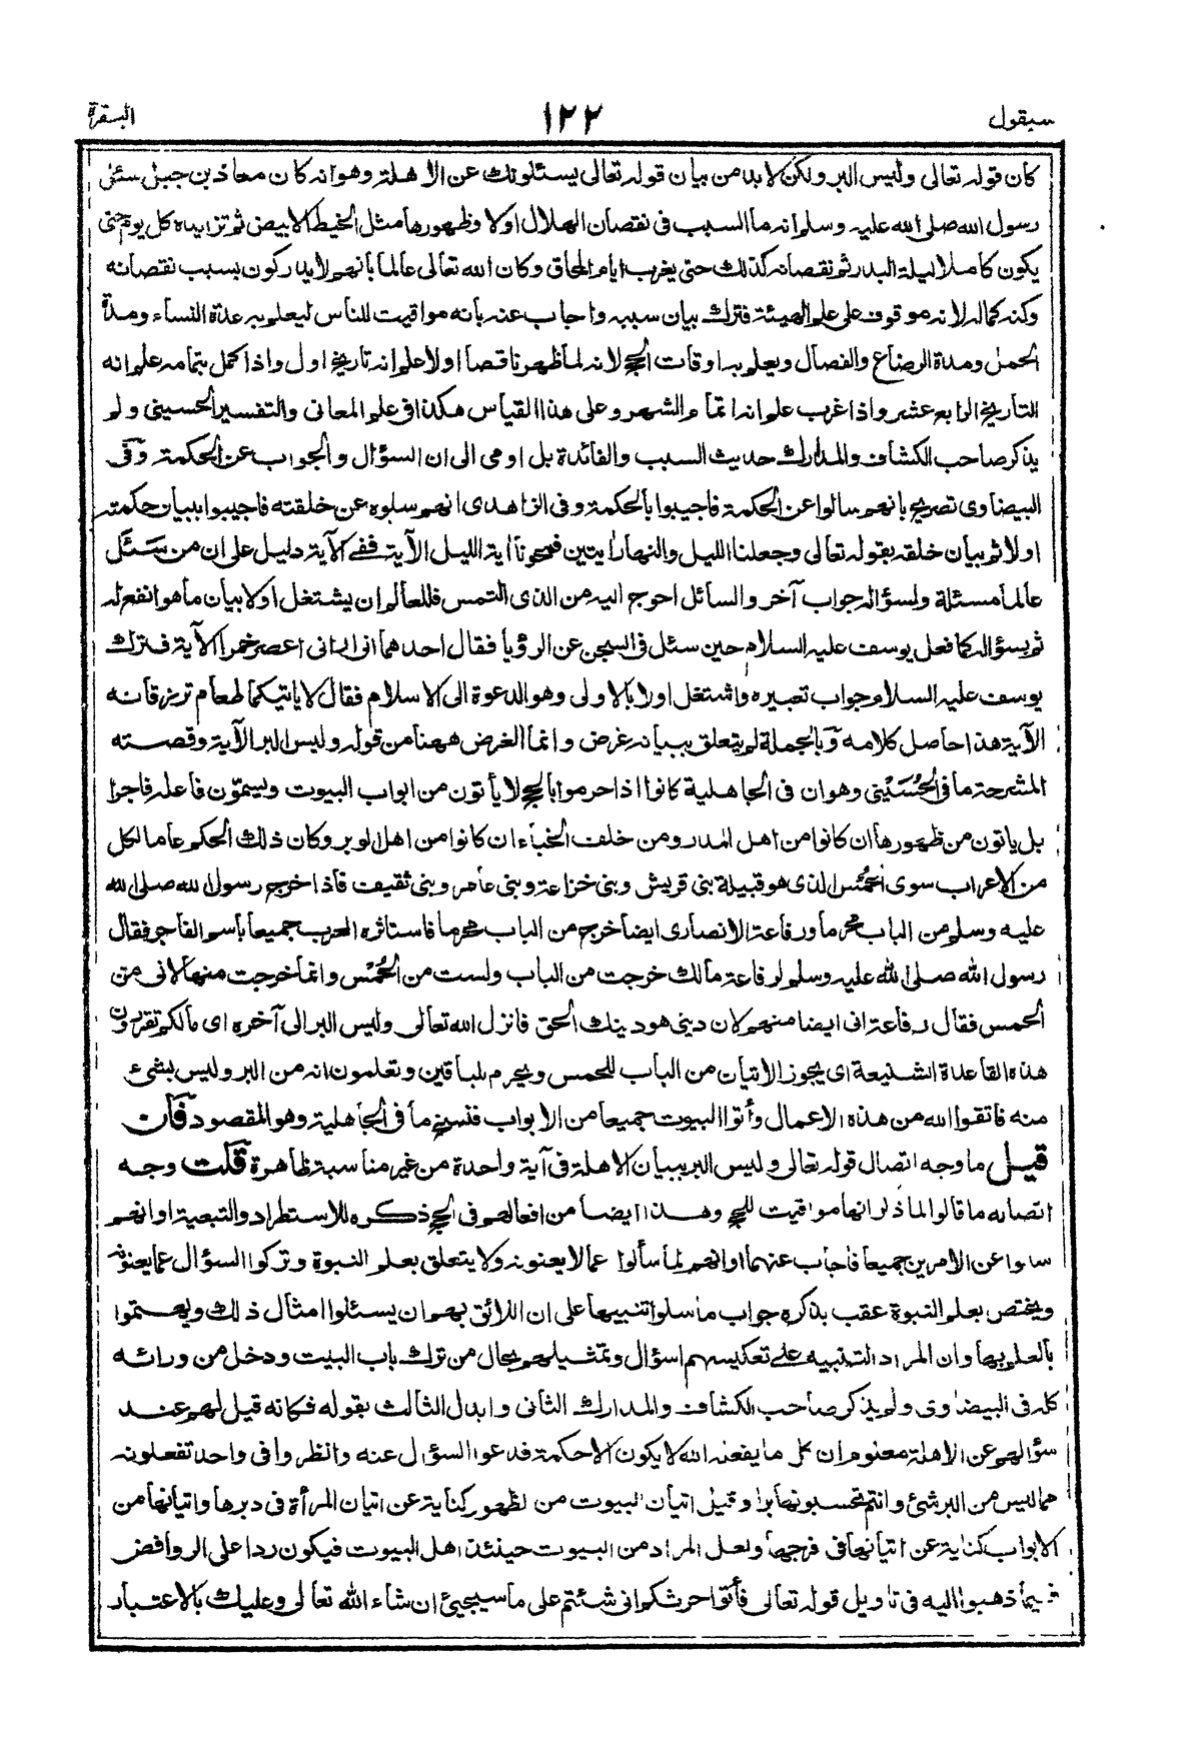 سيقول ١٢٢ البقرة
كان قوله تعالى وليس البر ولكن لابد من بيان قوله تعالى يسئلونك عن الاهلة وهو انه كان معاذ بن جبل سئل
رسول الله صلى الله عليه وسلم انه ما السبب فى نقصان الهلال اولا وظهورها مثل الخيط الابيض ثم تزايده كل يوم حتى
يكون كاملا ليلة البدر ثم نقصانه كذلك حتى يغرب ايام المحاق وكان الله تعالى عالما بانهم لا يدركون بسبب نقصانه
وكنه كماله لانه موقوف على علم الهيئة فترك بيان سببه واجاب عنه بانه مواقيت للناس ليعلم به عدة النساء ومدة
الحمل ومدة الرضاع والفصال ويعلم به اوقات الحج لانه لما ظهر ناقصا اولا علم انه تاريخ اول واذا كمل بتمامه علم انه
التأريخ الرابع عشر واذا غرب علم انه اتمام الشهر وعلى هذا القياس هكذا فى علم المعانى والتفسير الحسينى ولم
يذكر صاحب الكشاف والمدارك حديث السبب والفائدة بل اومى الى ان السؤال والجواب عن الحكمة وفى
البيضاوى تصريح بانهم سالوا عن الحكمة فاجيبوا بالحكمة وفى الزاهدى انهم سلوه عن خلقته فاجيبوا ببيان حكمته
اولا ثم بيان خلقه بقوله تعالى وجعلنا الليل والنهار ايتين فمحونا اية الليل الآية ففى الآية دليل على ان من سئل
عالما مسئلة ولسؤاله جواب آخر والسائل احوج اليه من الذى التمس فللعالم ان يشتغل اولا بيان ما هو انفع له
ثم بسؤاله كما فعل يوسف عليه السلام حين سئل فى السجن عن الرؤيا فقال احدهما انى ارانى اعصر خمرا الآية فترك
يوسف عليه السلام جواب تعبيره واشتغل اولا بالاولى وهو الدعوة الى الاسلام فقال لا ياتيكما طعام ترزقانه
الآية هذا حاصل كلامه وبالجملة لم يتعلق ببيانه غرض وانما الغرض ههنا من قوله وليس البر الآية وقصته
المشرحة ما فى الحسينى وهو ان فى الجاهلية كانوا اذا حرموا بالحج لا يأتون من ابواب البيوت ويسمون فاعله فاجرا
بل ياتون من ظهورها ان كانوا من اهل المدر ومن خلف الخباء ان كانوا من اهل الوبر وكان ذلك الحكم عاما لكل
من الاعراب سوى الحمس الذى هو قبيلة بنى قريش وبنى خزاعة وبنى عامر وبنى ثقيف فاذا خرج رسول الله صلى الله
عليه وسلم من الباب محرما ورفاعة الانصارى ايضا خرج من الباب محرما فاستاثره العرب جميعا باسم الفاجر فقال
رسول الله صلى الله عليه وسلم لرفاعة مالك خرجت من الباب ولست من الحمس وانما خرجت منها لانى من
الحمس فقال رفاعة انى ايضا منهم لان دينى هو دينك الحق فانزل الله تعالى وليس البر الى آخره اى مالكم تقررون
هذه القاعدة الشنيعة اى يجوز الاتيان من الباب للحمس ويحرم للباقين وتعلمون انه من البر وليس بشئ
منه فاتقوا الله من هذه الاعمال وأتوا البيوت جميعا من الابواب فنسخ ما فى الجاهلية وهو المقصود فان
قيل ما وجه اتصال قوله تعالى وليس البر ببيان الاهلة فى آية واحدة من غير مناسبة ظاهرة قلت وجه
اتصاله ما قالوا لما ذكر انها مواقيت للحج وهذا ايضا من افعالهم فى الحج ذكره للاستطراد والتبعية او انهم
سالوا عن الامرين جميعا فاجاب عنهما او انهم لما سألوا عما لا يعنونه ولا يتعلق بعلم النبوة وتركوا السؤال عما يعنونه
ويختص بعلم النبوة عقب بذكره جواب ما سلوا تنبيها على ان اللائق بهم ان يسئلوا امثال ذلك ويهتموا
بالعلم بها وان المراد التنبيه على تعكيسهم اسؤال وتمثيلهم بحال من ترك باب البيت ودخل من ورائه
كله فى البيضاوى ولم يذكر صاحب الكشاف والمدارك الثانى وابدل الثالث بقوله فكانه قيل لهم عند
سؤالهم عن الاهلة معلوم ان كل ما يفعله الله لا يكون الا حكمة فدعوا السؤال عنه وانظروا فى واحد تفعلونه
مما ليس من البر شئ وانتم تحسبونها برا وقيل اتيان البيوت من ظهور كناية عن اتيان المرأة فى دبرها واتيانها من
الابواب كناية عن اتيانها فى فرجها ولعل المراد من البيوت حينئذ اهل البيوت فيكون ردا على الروافض
فيما ذهبوا اليه فى تاويل قوله تعالى فأتوا حرثكم انى شئتم على ما سيجيئ ان شاء الله تعالى وعليك بالاعتبار